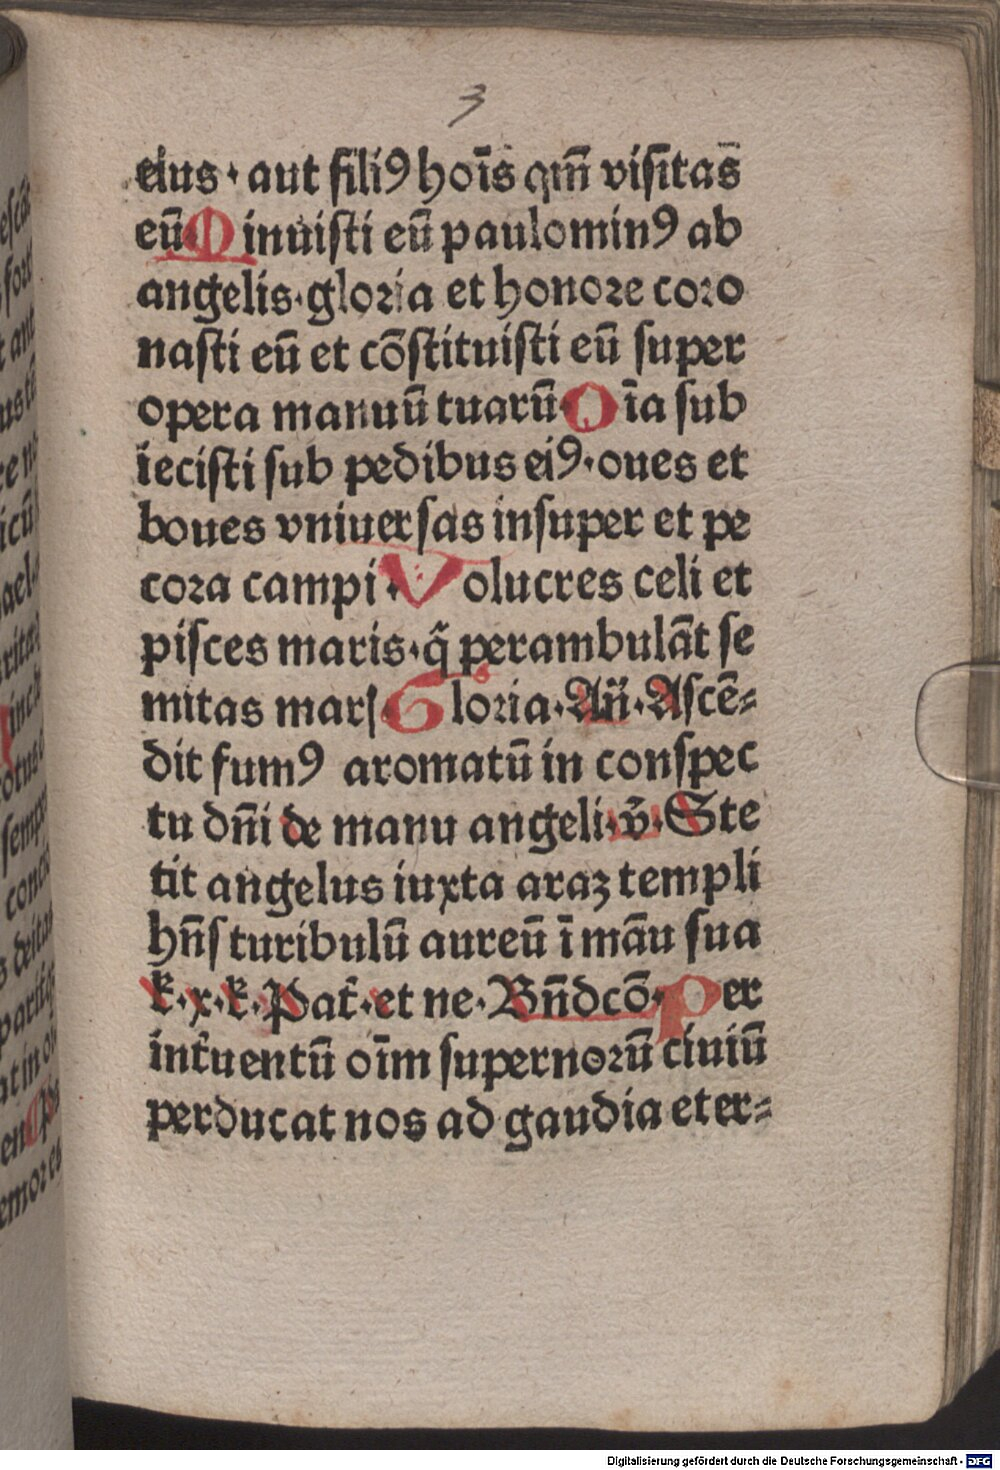 3
eius · aut filiꝰ hoīs qm̄ visitas̄
eū Minuisti eū paulominꝰ ab
angelis · gloria et honore coro
nasti eū et cōstituisti eū super
opera manuū tuarū · Oīa sub
iecisti sub pedibus eiꝰ · oues et
boues vniuersas insuper et pe
cora campi · Volucres celi et
pisces maris · q̄ perambulāt se
mitas marꝭ Gloria · Añ · Ascē⸗
dit fumꝰ aromatū in conspec
tu dñi de manu angeli · v̄ · Ste
tit angelus iuxta araꝫ templi
hn̄s turibulū aureū ī māu sua
k̄ · x · k̄ · Pat̄ · et ne · Bn̄dcō · Per
int̄uentū oīm supernorū ciuiū
perducat nos ad gaudia eter⸗
Digitalisierung gefördert durch die Deutsche Forschungsgemeinschaft - DFG